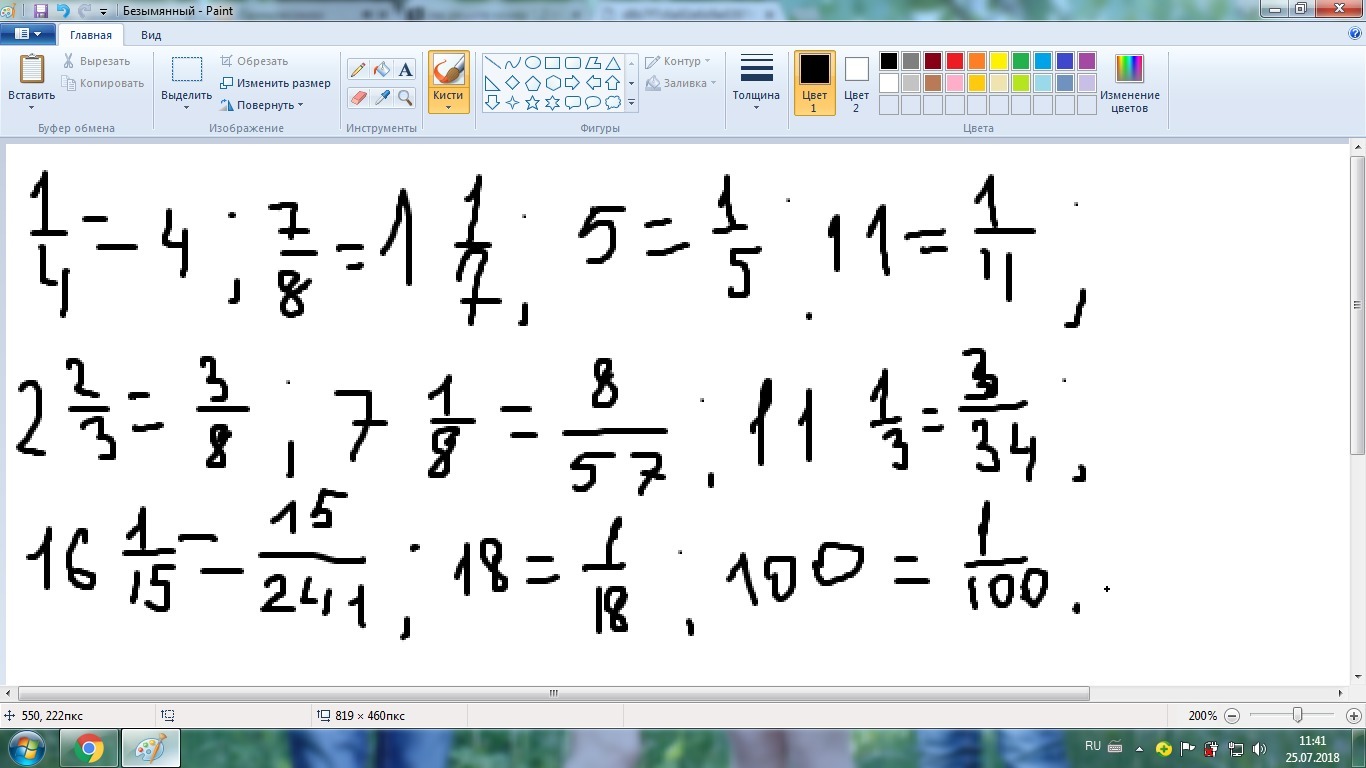 Безымянный - Paint
Главная Вид
Вставить Вырезать Копировать Буфер обмена
Выделить Обрезать Изменить размер Повернуть Изображение
Инструменты
Кисти
Контур Заливка Фигуры
Толщина
Цвет 1 Цвет 2 Изменение цветов Цвета
1/4 = 4 ; 7/8 = 1 1/7 ; 5 = 1/5 ; 11 = 1/11 ;
2 2/3 = 3/8 ; 7 1/8 = 8/57 ; 11 1/3 = 3/34 ;
16 1/15 = 15/241 ; 18 = 1/18 ; 100 = 1/100 .
550, 222пкс 819 × 460пкс 200%
RU 11:41
25.07.2018